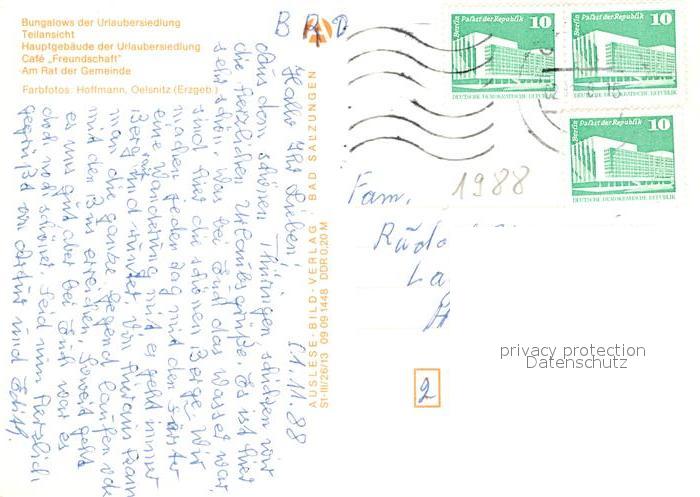 Bungalows der Urlaubersiedlung
Teilansicht
Hauptgebäude der Urlaubersiedlung
Café „Freundschaft"
Am Rat der Gemeinde
Farbfotos: Hoffmann, Oelsnitz (Erzgeb.)
BRD
01.11.88
Hallo Ihr Lieben!
Aus dem schönen Thüringen schicken wir
die herzlichen Urlaubsgrüße. Es ist hier
sehr schön, was bei Euch das Wasser war,
sind hier die schönen Berge. Wir
machen jeden Tag mit dem Förster
eine Wanderung mit es geht immer
Berg rauf und runter. Von hieraus kann
man die ganze Gegend laufen oder
mit dem Bus erreichen. Soweit geht
es uns gut aber bei Euch war es
doch noch schöner. Seid nun herzlich
gegrüßt von und Edith.
AUSLESE-BILD-VERLAG BAD SALZUNGEN
St-III/26/13 09 09 1448 DDR 0,20 M
Berlin Palast der Republik 10
DEUTSCHE DEMOKRATISCHE REPUBLIK
Berlin Palast der Republik 10
DEUTSCHE DEMOKRATISCHE REPUBLIK
Berlin Palast der Republik 10
DEUTSCHE DEMOKRATISCHE REPUBLIK
1988
Fam.
Rudo
La
privacy protection
Datenschutz
2